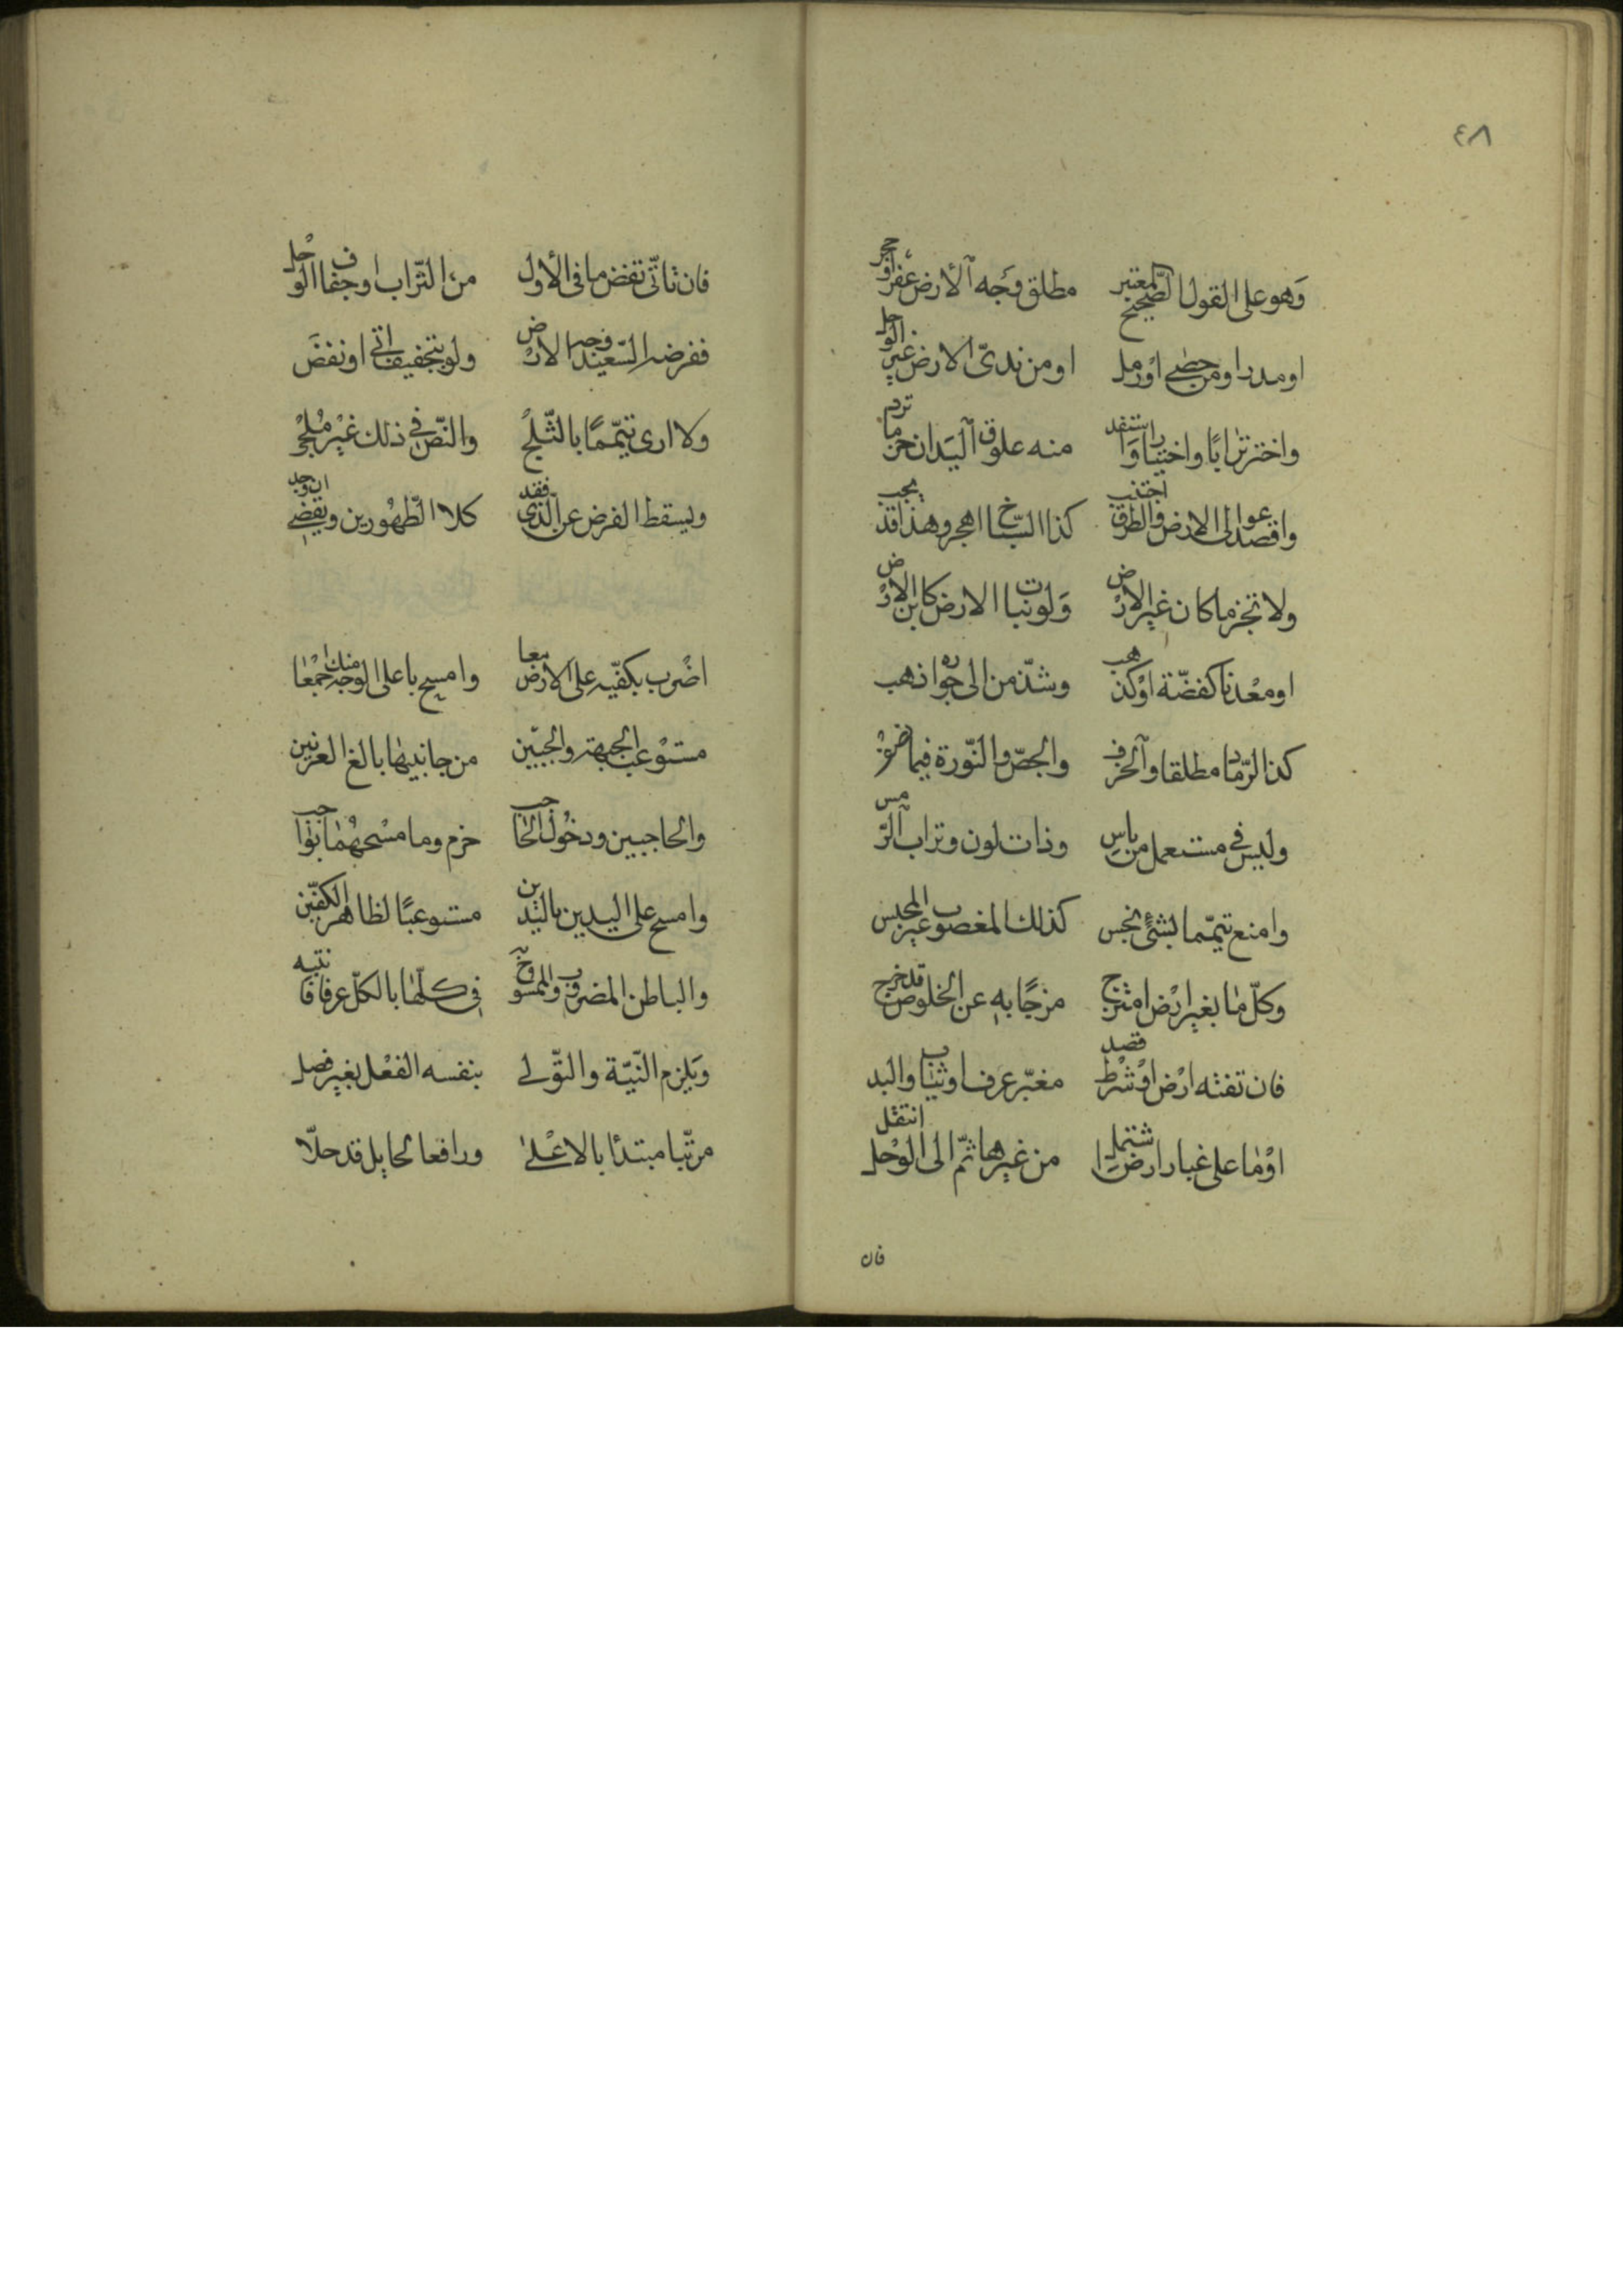 ٤٨
وَهو على القول الصّحيح المعتبر مطلق وَجه الأرض عفر او حجر
او مدر او من حصى او رمل او من ندىّ الارض غير الوحل
واختر ترابًا واختيارا استفد منه علوق اليَد ان حزما ترم
واقصد الى عوالى الارض والطرق اجتنب كذا السّباخ اهجر وهذا قد يجب
ولا تجز ما كان غير الارض وَلو نباتا الارض كابن الارض
او معْدنا كفضّة او كذهب وشذّ من الى جوازه ذهب
كذا الرّماد مطلقا والخزف والجصّ والنّورة فيما
وليس فى مستعمل من باسِ وذات لون وتراب الرّمس
وامنع تيمّما بشئ نجس كذلك المغصوب غير المحبس
وكلّ مٰا بغير ارْض امتزج مزجًا بهِ عن الخلوص قد خرج
فان تفته ارْض اوْ شرْط قصد مغبّر عرف اوثيٰاب واللبد
اوْمٰا على غبار ارض اشتمل من غيرها ثمّ الى الوْحل انتقل
فان
فان تأتّى نفض ما فى الأول من التّراب او جفاف الوحل
ففرضه الصّعيد وجه الارْض ولو بتجفيف اتى او نفضَ
ولا ارى تيمّمًا بالثّلْج والنّص فى ذلك غيْر مُلْجِ
ويسقط الفرض عن الّذى فقد كلا الطّهُورين ويقضى ان وجد
اضْرب بكفّيه على الارض معا وامسح باعلى الوجه منك جمْعا
مستوْعب الجبهة والجبيّن من جانبيهٰا بالغ العرنين
والحاجبين ودخُول الحٰاجب خرم وما مسْحهُمٰا بواجب
وامسح على اليدين باليدين مستوعبًا لظاهر الكفّين
والباطن المضروب والممسوح فى كلّهٰا بالكلّ عرفا فانتبه
وَيلزم النّيّة والتّولى بنفسه الفعْل بغير فصل
مرتّبا مبتدئا بالاعْلىٰ ورافعا لحايل قد حلّا